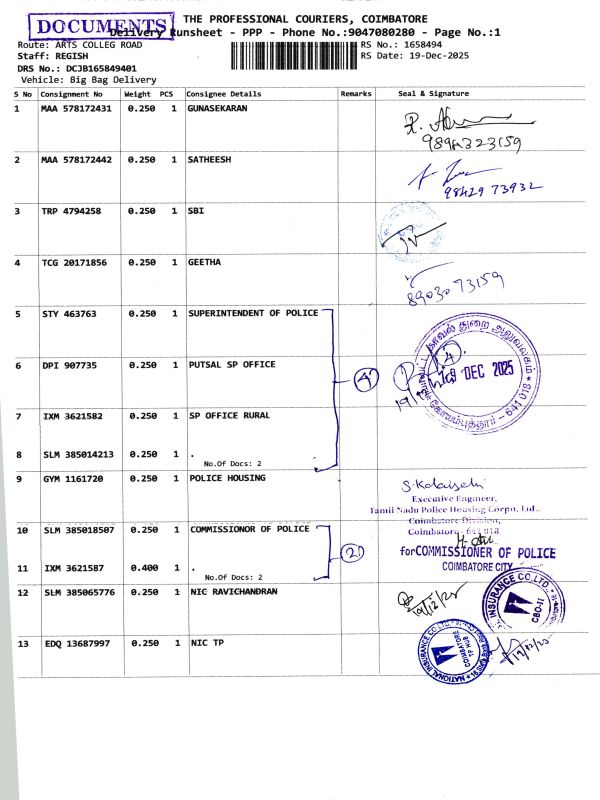 DOCUMENTS
THE PROFESSIONAL COURIERS, COIMBATORE
Delivery Runsheet - PPP - Phone No.:9047080280 - Page No.:1
Route: ARTS COLLEG ROAD
RS No.: 1658494
Staff: REGISH
RS Date: 19-Dec-2025
DRS No.: DCJB165849401
Vehicle: Big Bag Delivery
S No Consignment No Weight PCS Consignee Details Remarks Seal & Signature
1 MAA 578172431 0.250 1 GUNASEKARAN
9894323159
2 MAA 578172442 0.250 1 SATHEESH
98429 73932
3 TRP 4794258 0.250 1 SBI
4 TCG 20171856 0.250 1 GEETHA
89030 73159
5 STY 463763 0.250 1 SUPERINTENDENT OF POLICE
6 DPI 907735 0.250 1 PUTSAL SP OFFICE
4
காவல் துறை அலுவலகம்
DEC 2025
கோயம்புத்தூர் - 641 018
7 IXM 3621582 0.250 1 SP OFFICE RURAL
8 SLM 385014213 0.250 1 .
No.Of Docs: 2
9 GYM 1161720 0.250 1 POLICE HOUSING
Executive Engineer,
Tamil Nadu Police Housing Corpn. Ltd.,
Coimbatore Division,
Coimbatore - 641 018
10 SLM 385018507 0.250 1 COMMISSIONER OF POLICE
2
for COMMISSIONER OF POLICE
COIMBATORE CITY
11 IXM 3621587 0.400 1 .
No.Of Docs: 2
12 SLM 385065776 0.250 1 NIC RAVICHANDRAN
19/12/25
INSURANCE CO.LTD.
CBO-II
13 EDQ 13687997 0.250 1 NIC TP
NATIONAL INSURANCE CO.LTD.
COIMBATORE
TP HUB
19/12/25